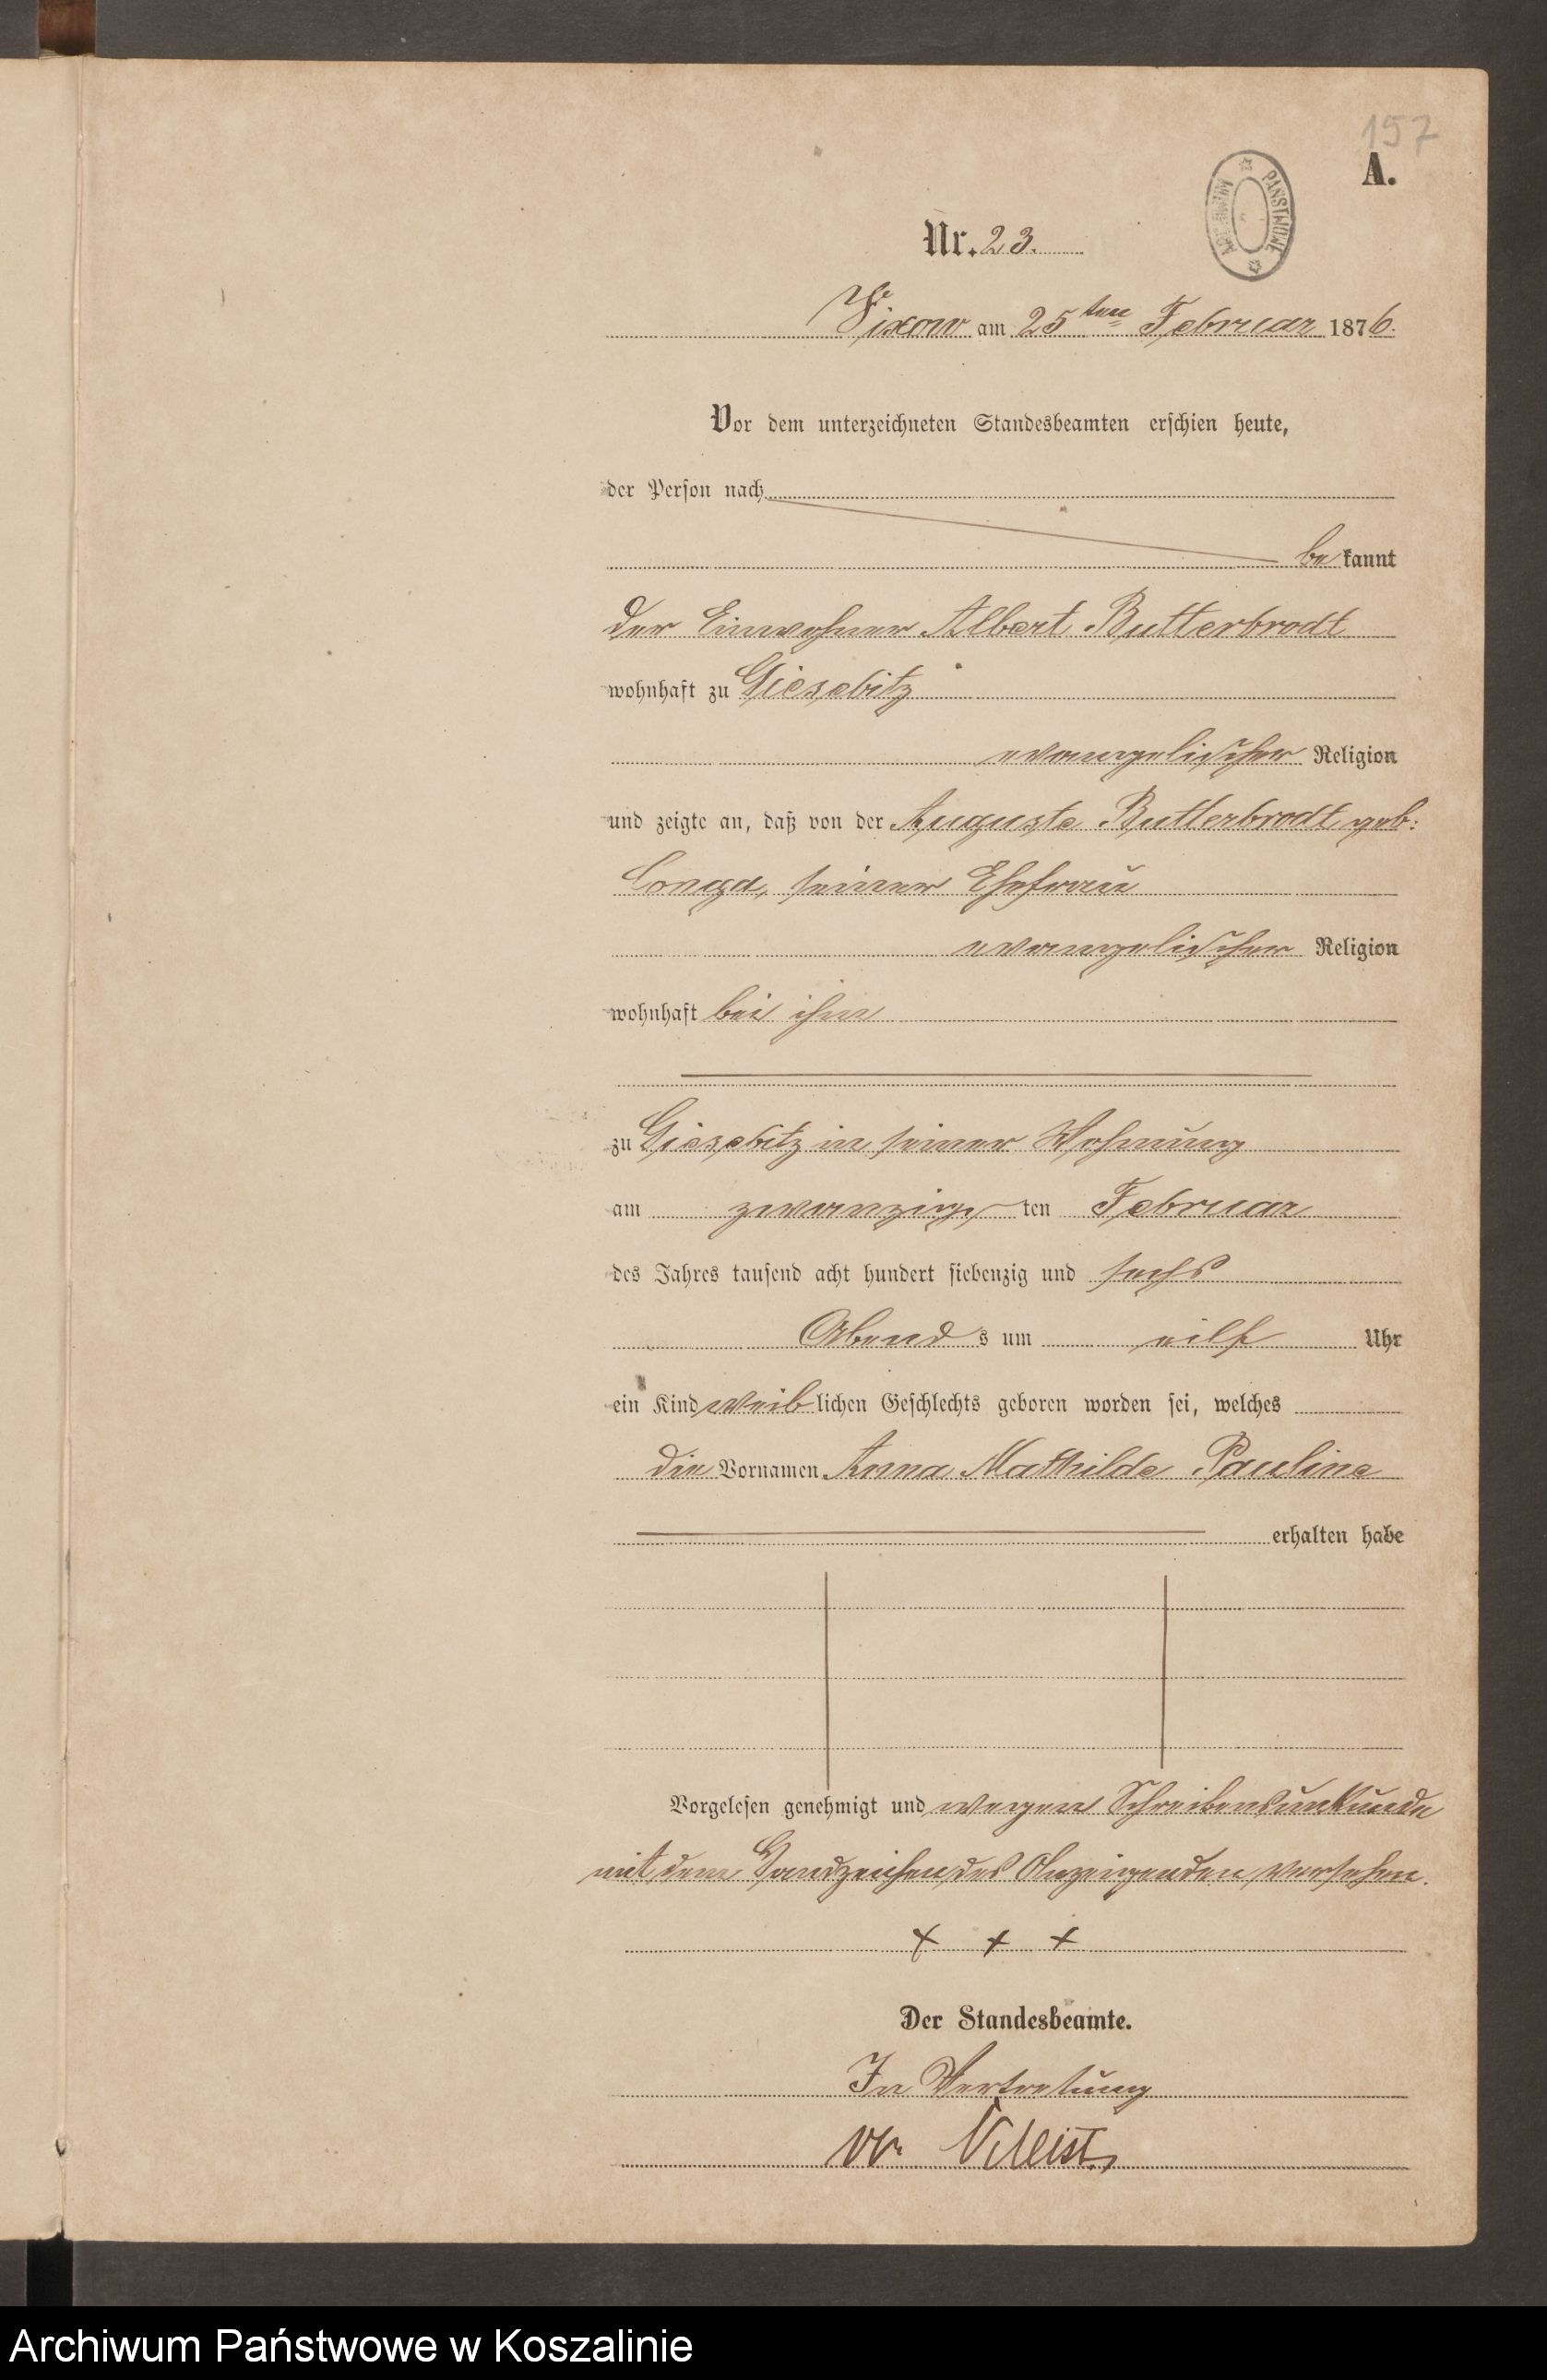 157
A.
Nr. 23.
Vixow am 25ten Februar 1876.
Vor dem unterzeichneten Standesbeamten erschien heute,
der Person nach
bekannt
der Einwohner Albert Butterbrodt
wohnhaft zu Giesebitz
evangelischer Religion
und zeigte an, daß von der Auguste Butterbrodt geb:
seiner Ehefrau
evangelischer Religion
wohnhaft bei ihm
zu Giesebitz in seiner Wohnung
am zwanzigsten Februar
des Jahres tausend acht hundert siebenzig und sechs
Abends um eilf Uhr
ein Kind weiblichen Geschlechts geboren worden sei, welches
die Vornamen Anna Mathilde Pauline
erhalten habe
Vorgelesen genehmigt und wegen Schreibensunkunde
mit dem Handzeichen des Anzeigenden versehen.
+ + +
Der Standesbeamte.
In Vertretung
v. Kleist
Archiwum Państwowe w Koszalinie